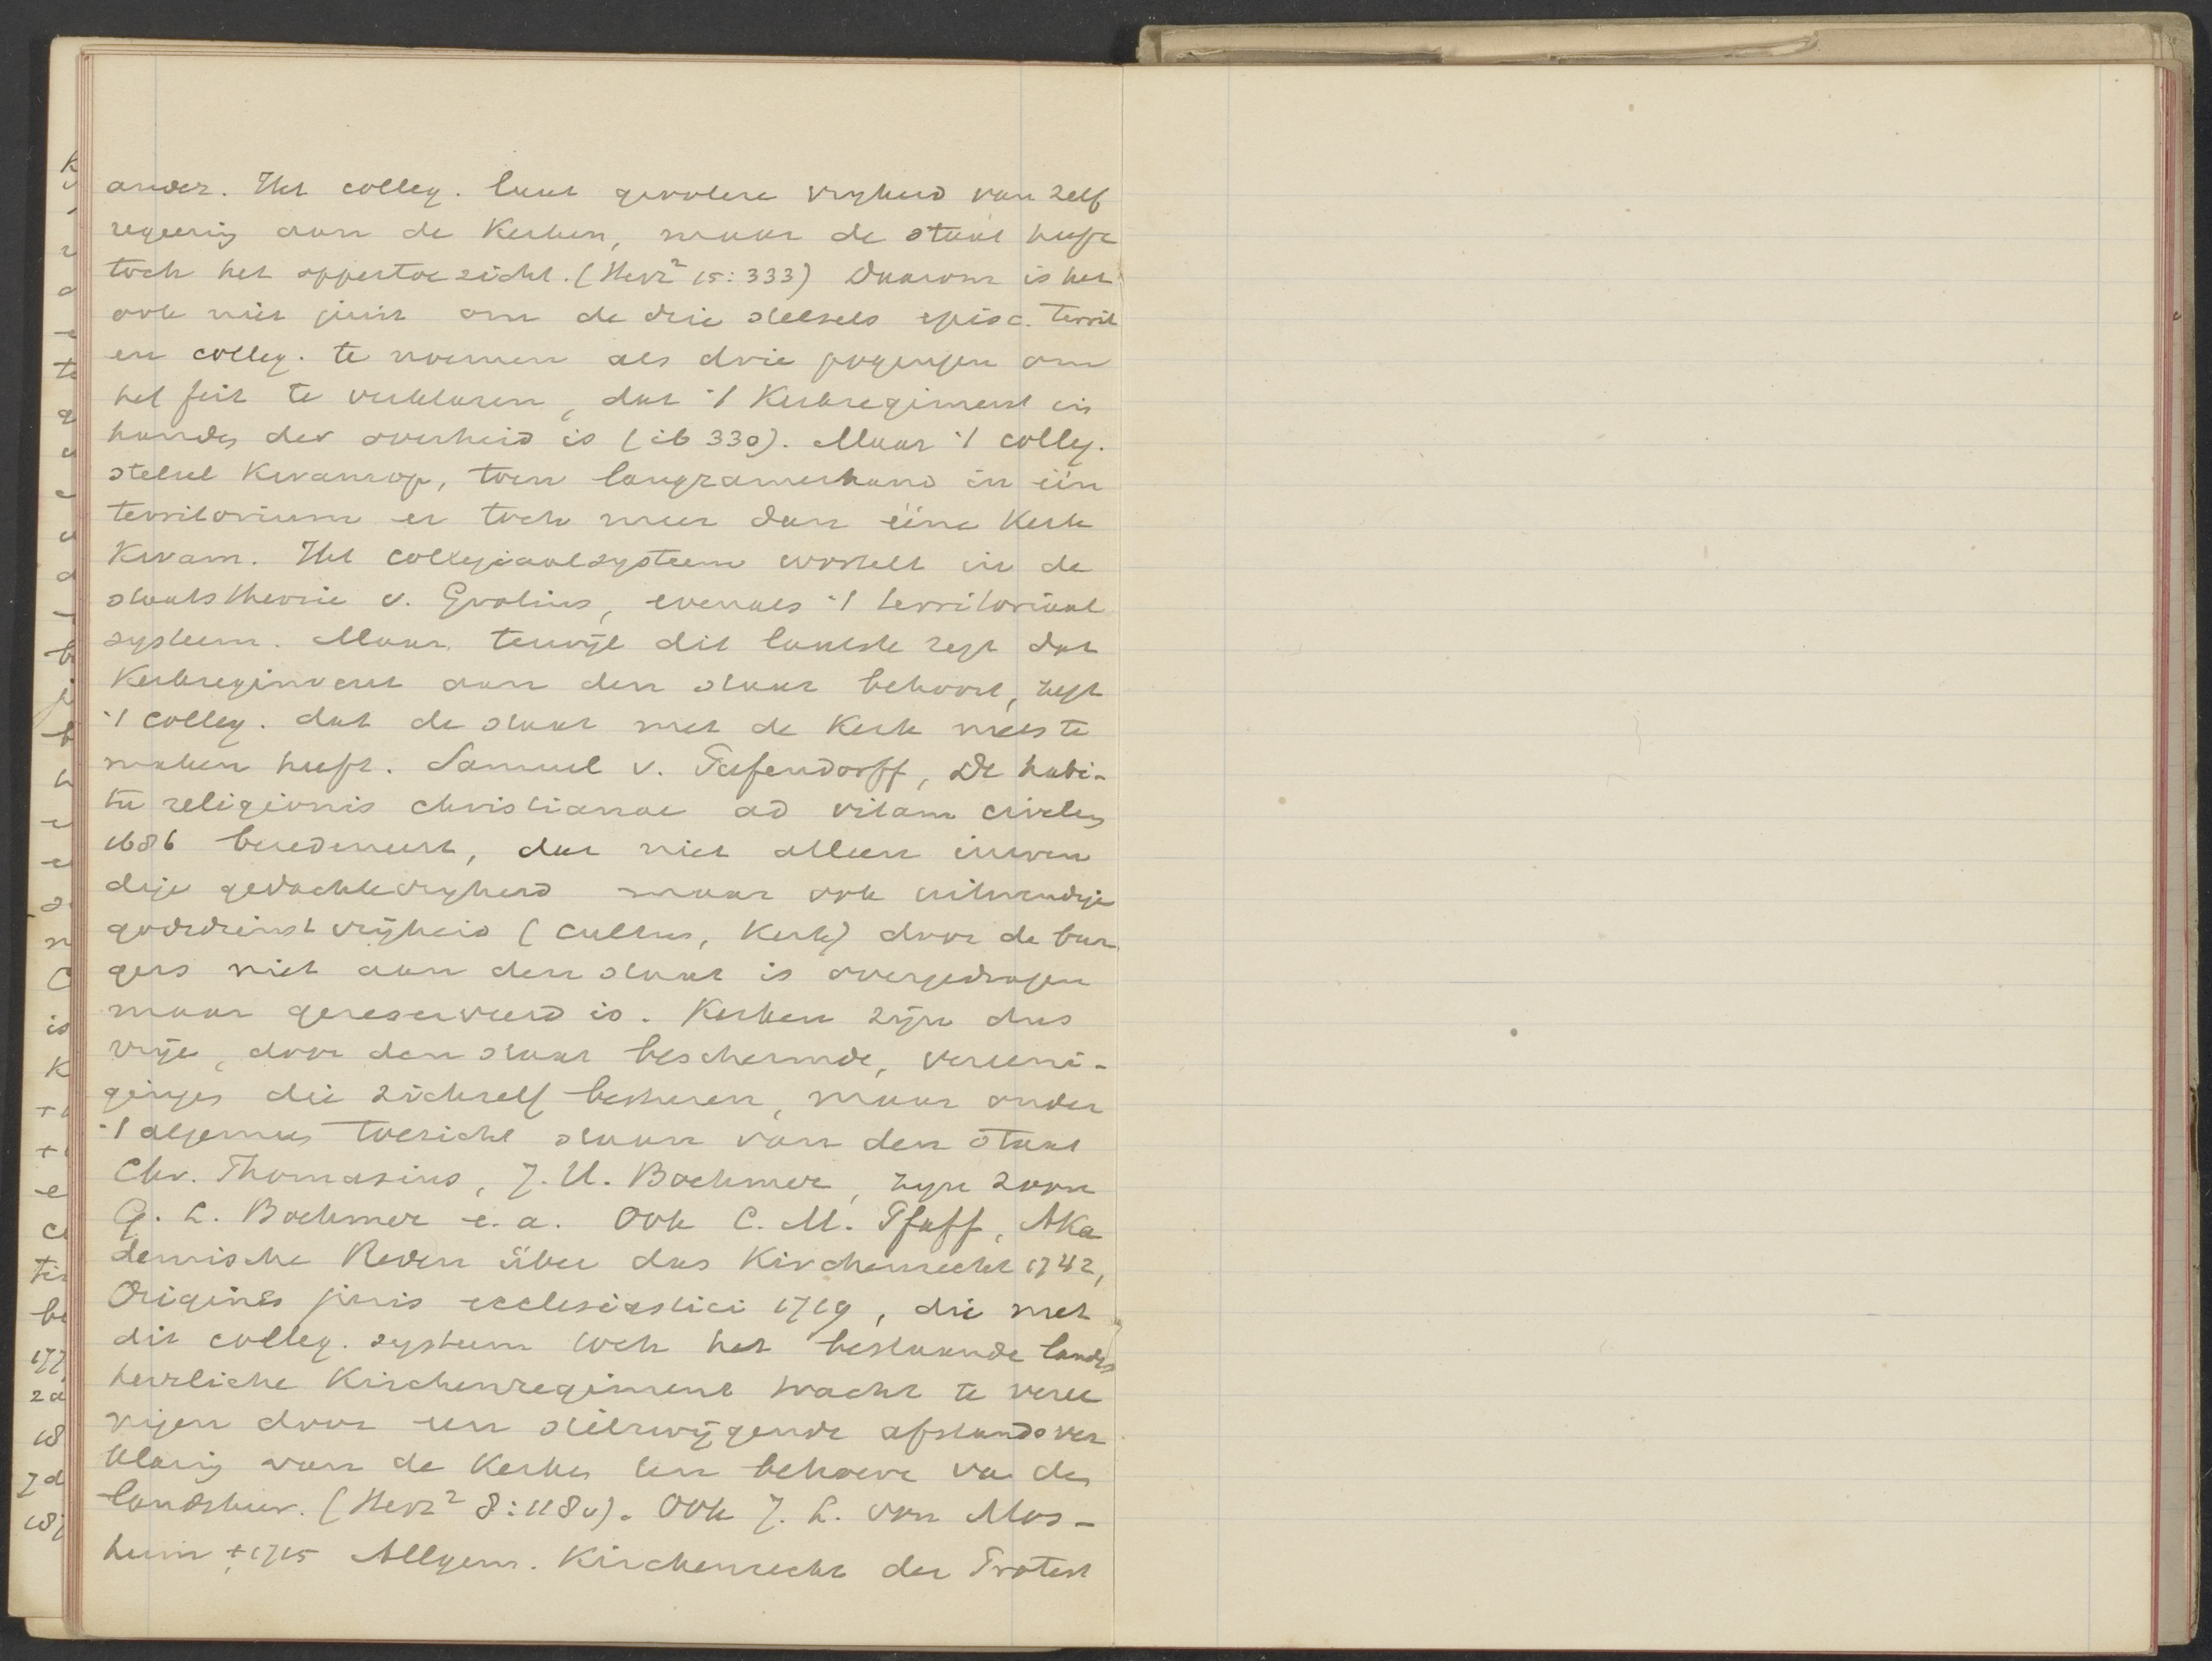 ander. Het colleg. laat grootere vryheid van zelf
regeering aan de Kerken, maar de staat heeft
toch het oppertoezicht. (Herz² 15:333) Daarom is het
ook niet juist om de drie stelsels episc. territ
en colleg. te noemen als drie pogingen om
het feit te verklaren, dat 't Kerkregiment in
handen der overheid is (ib 330). Maar 't colleg.
stelsel Kwam op, toen langzamerhand in één
territorium er toch meer dan ééne Kerk
Kwam. Het collegiaalsysteem wortelt in de
staatstheorie v. Grotius, evenals 't territoriaal
systeem. Maar terwijl dit laatste zegt dat
Kerkregiment aan den staat behoort, zegt
't colleg. dat de staat met de Kerk niets te
maken heeft. Samuel v. Pufendorff, De habi-
tu religionis christianae ad vitam civilem
1686 beredeneert, dat niet alleen inwen
dige gedachtevryheid maar ook uitwendige
godsdienstvrijheid (cultus, Kerk) door de bur
gers niet aan den staat is overgedragen
maar gereserveerd is. Kerken zijn dus
vrije, door den staat beschermde, vereeni-
gingen die zichzelf besturen, maar onder
't algemeen toezicht staan van den staat
Chr. Thomasius, J. H. Boehmer, zijn zoon
G. L. Boehmer e.a. Ook C. M. Pfaff, Aka
demische Reden über das Kirchenrecht 1742,
Origines juris ecclesiastici 1719, die met
dit colleg. systeem toch het bestaande landes
herrliche Kirchenregiment tracht te veree
nigen door een stilzwijgende afstandsver
klaring van de Kerken ten behoeve van den
landsheer. (Herz² 8:118v). Ook J. L. von Mos-
heim +1715 Allgem. Kirchenrecht der Protest